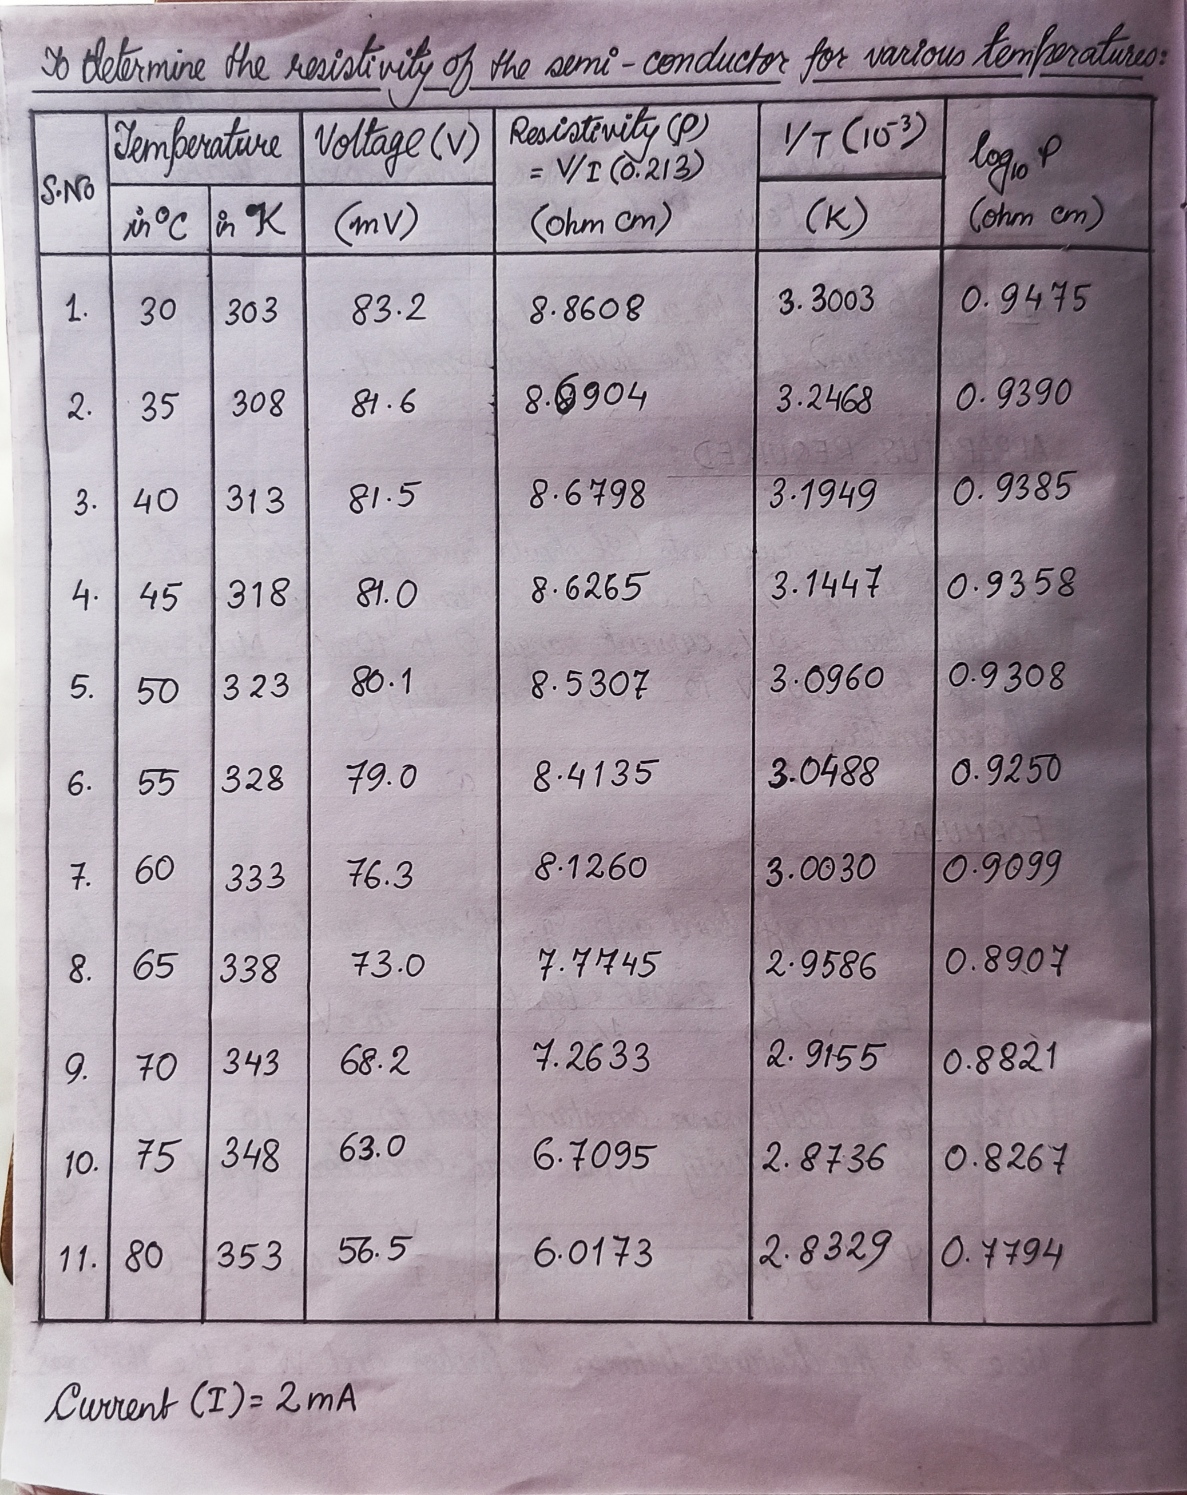 To determine the resistivity of the semi-conductor for various temperatures:
S.No | Temperature | Voltage (V) | Resistivity (ρ) = V/I (0.213) | 1/T (10⁻³) | log₁₀ ρ
in °C | in K | (mV) | (ohm cm) | (K) | (ohm cm)
1. 30 303 83.2 8.8608 3.3003 0.9475
2. 35 308 81.6 8.6904 3.2468 0.9390
3. 40 313 81.5 8.6798 3.1949 0.9385
4. 45 318 81.0 8.6265 3.1447 0.9358
5. 50 323 80.1 8.5307 3.0960 0.9308
6. 55 328 79.0 8.4135 3.0488 0.9250
7. 60 333 76.3 8.1260 3.0030 0.9099
8. 65 338 73.0 7.7745 2.9586 0.8907
9. 70 343 68.2 7.2633 2.9155 0.8821
10. 75 348 63.0 6.7095 2.8736 0.8267
11. 80 353 56.5 6.0173 2.8329 0.7794
Current (I) = 2mA